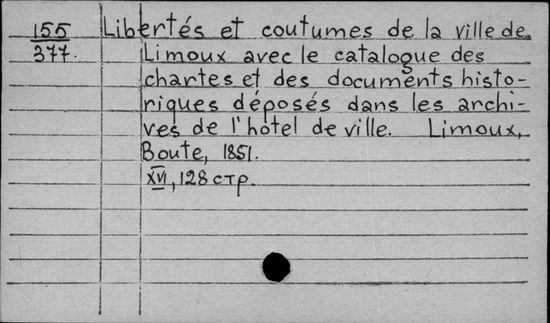 155 Libertés et coutumes de la ville de
377. Limoux avec le catalogue des
chartes et des documents histo-
riques déposés dans les archi-
ves de l'hôtel de ville. Limoux,
Boute, 1851.
XVI, 128 стр.